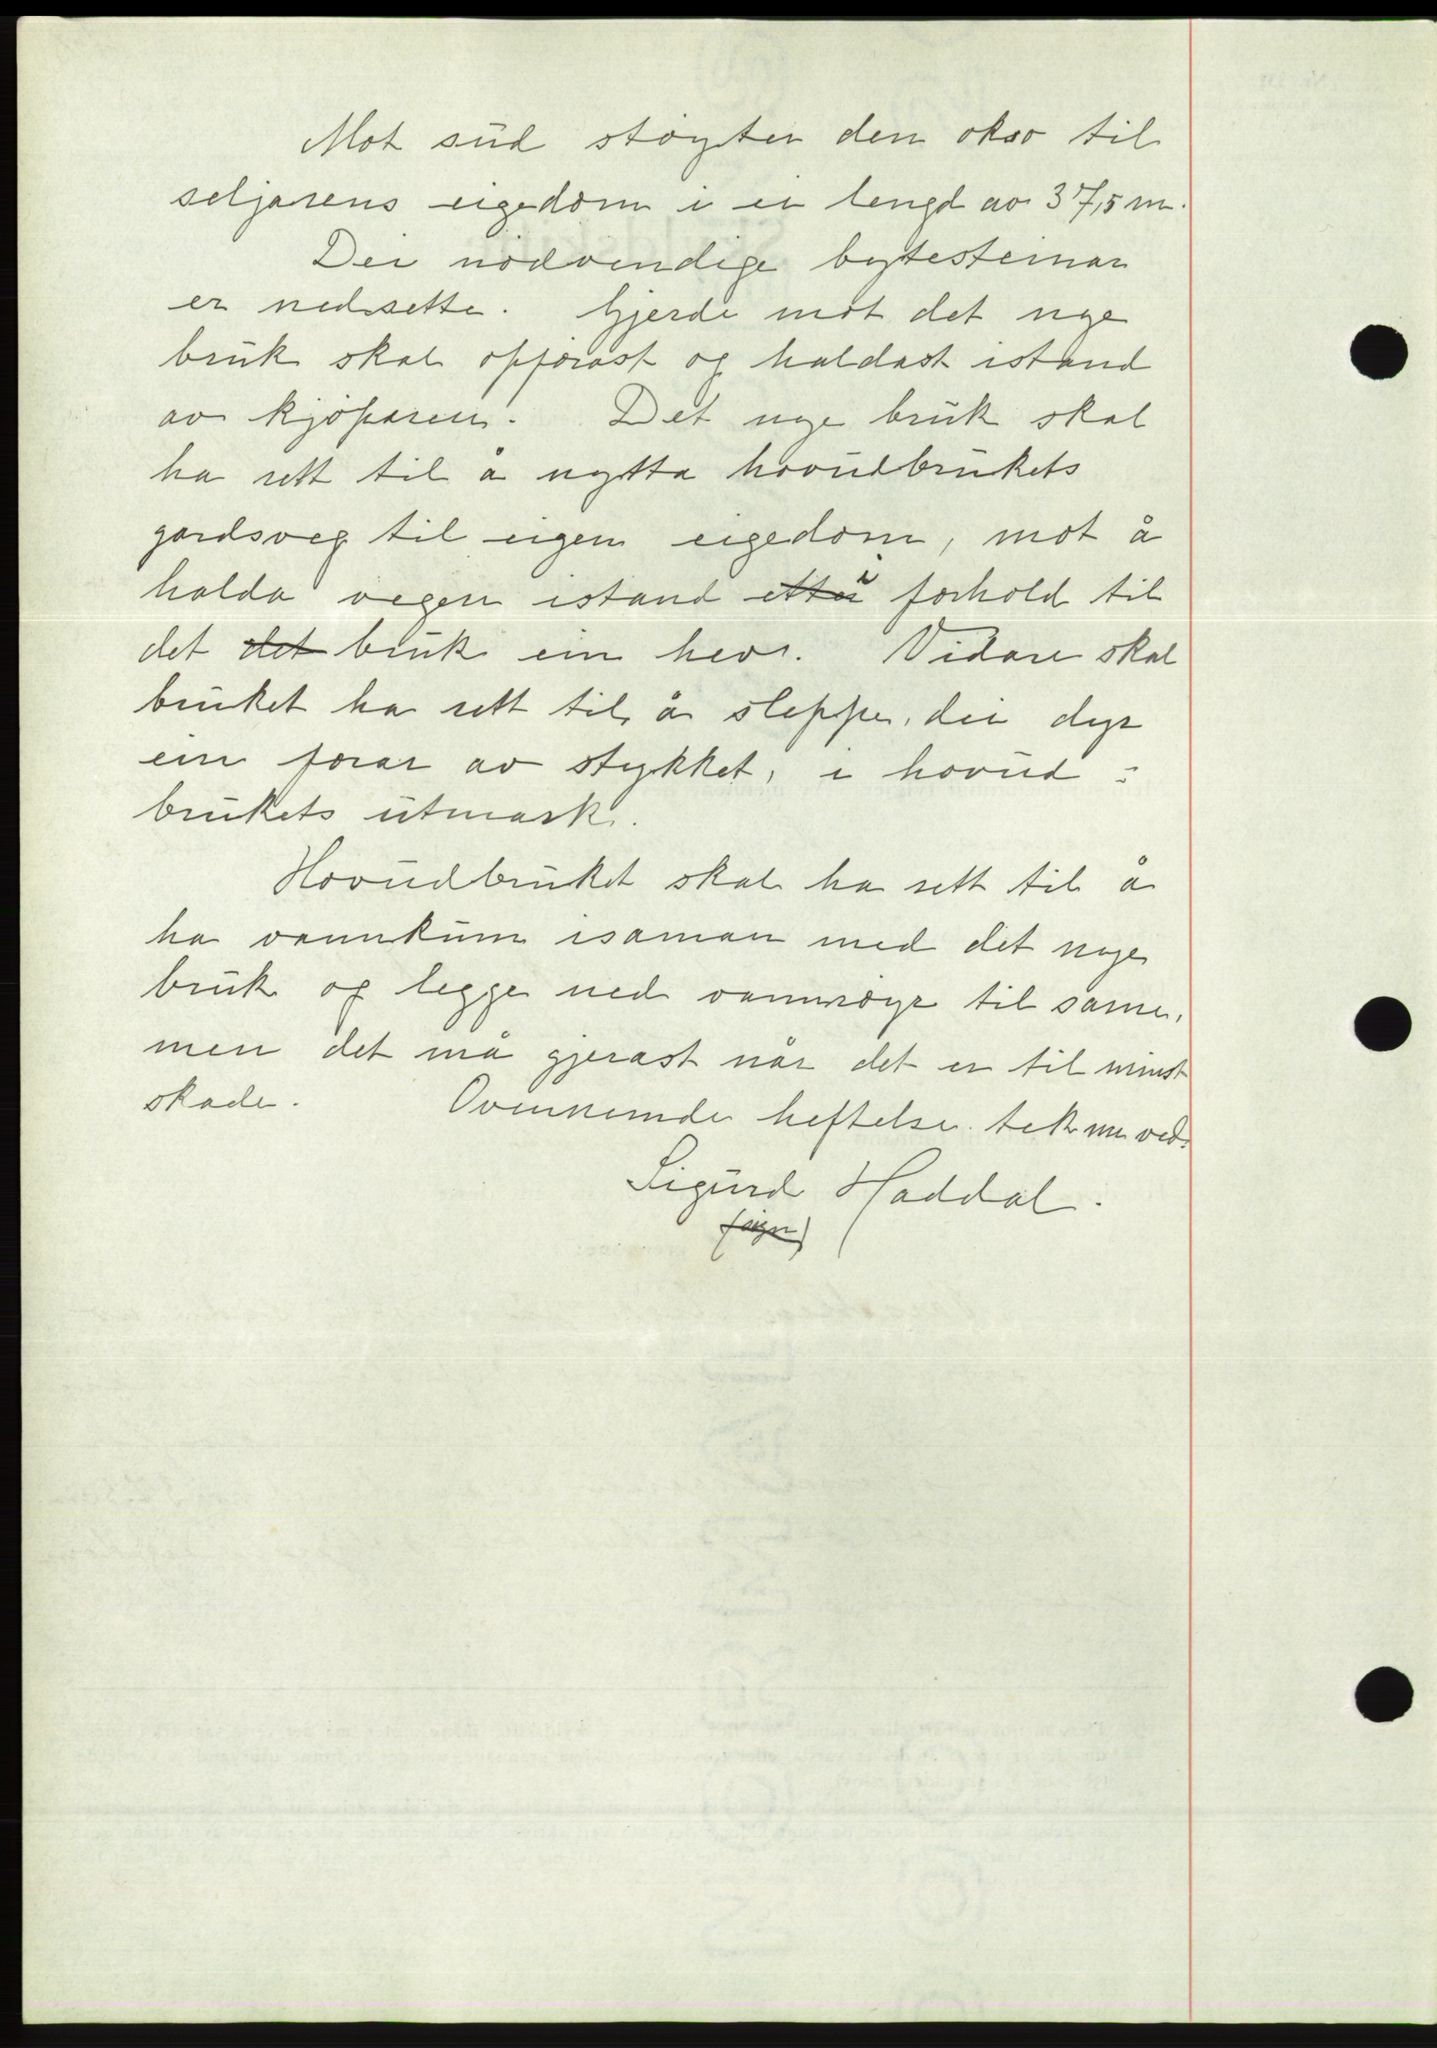 Mot süd støyter den okso til
seljarens eigedom i ei lengd av 37,5 m.
Dei nödvendige bytesteinar
er nedsette. Gjerde mot det nye
brük skal opförast og haldast istand
av kjöparen. Det nye brük skal
ha rett til å nytta hovüdbrükets
gardsveg til eigen eigedom, mot å
halda vegen istand etter i forhold til
det det brük ein hevr. Vidare skal
brüket ha rett til å sleppe, dei dyr
ein forar av stykket, i hovüd=
brükets ütmark.
Hovüdbrüket skal ha rett til å
ha vannküm isaman med det nye
brük og legge ned vannröyr til same,
men det må gjerast når det er til minst
skade. Ovennemde heftelse tek me ved.
Sigürd Haddal.
(sign)